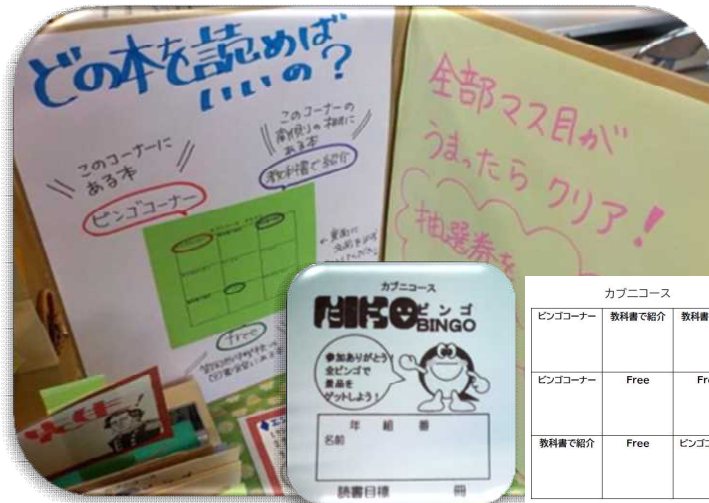 どの本を読めば
いいの？
このコーナーに
ある本
ビンゴコーナー
このコーナーの
棚に
ある本
教科書で紹介
Free
全部マス目が
うまったら クリア！
抽選券を
カブニコース
NIKOビンゴ
BINGO
参加ありがとう！
全ビンゴで
景品を
ゲットしよう！
年 組 番
名前
読書目標 冊
カブニコース
ビンゴコーナー 教科書で紹介 教科書
ビンゴコーナー Free Fr
教科書で紹介 Free ビンゴコ